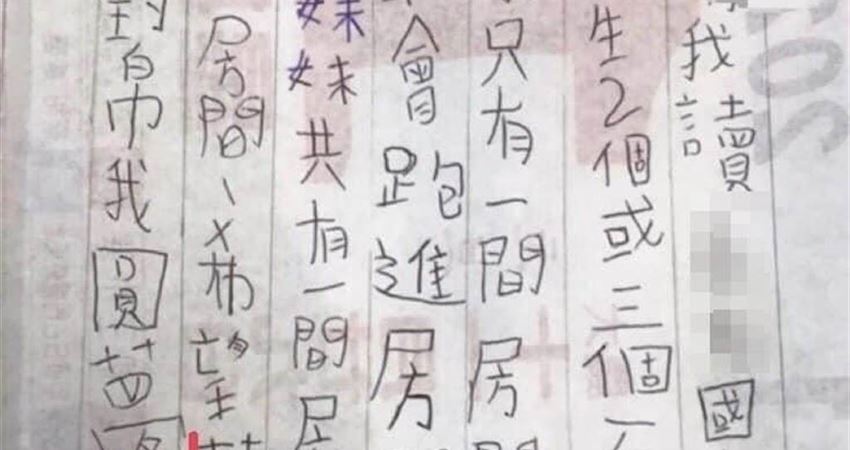 我讀國
生2個或三個
只有一間房間
會跑進房
妹妹共有一間房
房間、希望
幫我圓夢